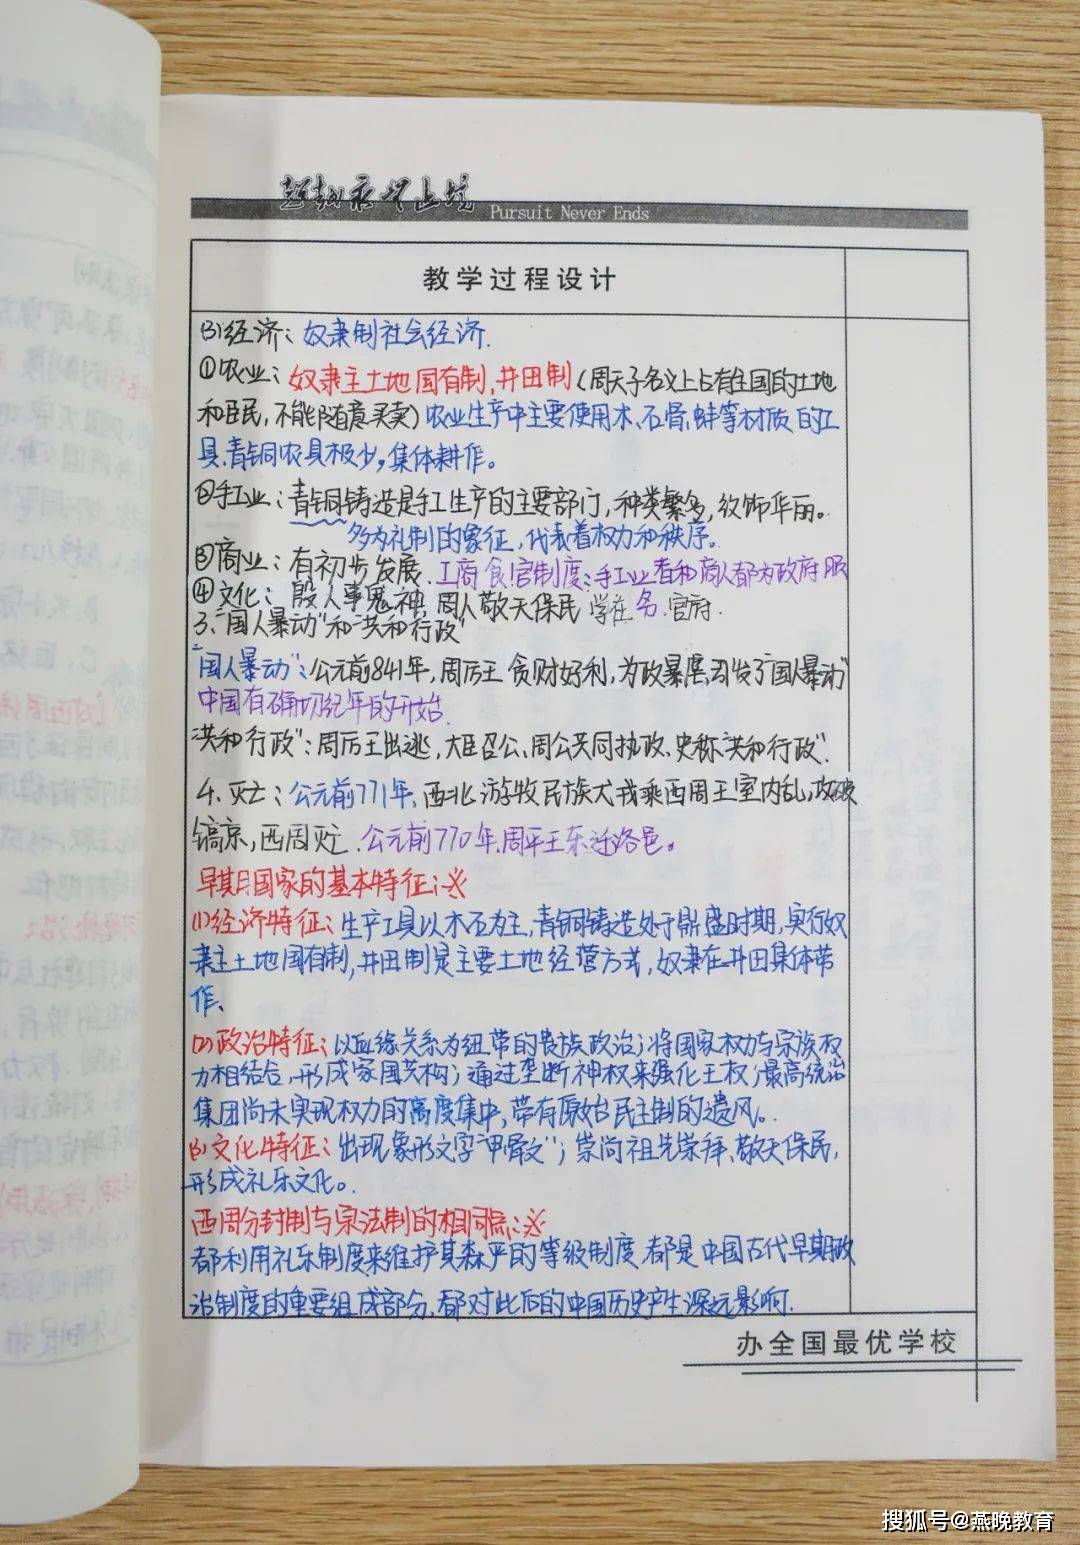 超越永无止境
Pursuit Never Ends
教学过程设计
(3)经济：奴隶制社会经济.
①农业：奴隶主土地国有制,井田制(周天子名义上占有全国的土地
和臣民,不能随意买卖)农业生产中主要使用木、石骨,蚌等材质的工
具.青铜农具极少,集体耕作。
②手工业：青铜铸造是手工生产的主要部门,种类繁多,纹饰华丽。
多为礼制的象征,代表着权力和秩序。
③商业：有初步发展.工商食官制度：手工业者和商人都为政府服
务.
④文化：殷人事鬼神,周人敬天保民 学在官府.
3、"国人暴动"和"共和行政"
"国人暴动"：公元前841年,周厉王贪财好利,为政暴虐,引发了"国人暴动"
中国有确切纪年的开始.
"共和行政"：周厉王出逃,大臣召公、周公共同执政.史称"共和行政".
4.灭亡：公元前771年、西北游牧民族犬戎乘西周王室内乱,攻破
镐京,西周灭亡.公元前770年.周平王东迁洛邑。
早期国家的基本特征：※
(1)经济特征：生产工具以木石为主,青铜铸造处于鼎盛时期,实行奴
隶主土地国有制,井田制是主要土地经营方式,奴隶在井田集体劳
作、
(2)政治特征：以血缘关系为纽带的贵族政治；将国家权力与宗族权
力相结合,形成家国共构；通过垄断神权来强化王权；最高统治
集团尚未实现权力的高度集中,带有原始民主制的遗风。
(3)文化特征：出现象形文字"甲骨文"；崇尚祖先崇拜、敬天保民,
形成礼乐文化。
西周分封制与宗法制的相同点：※
都利用礼乐制度来维护其森严的等级制度.都是中国古代早期政
治制度的重要组成部分,都对此后的中国历史产生深远影响.
办全国最优学校
搜狐号@燕晚教育